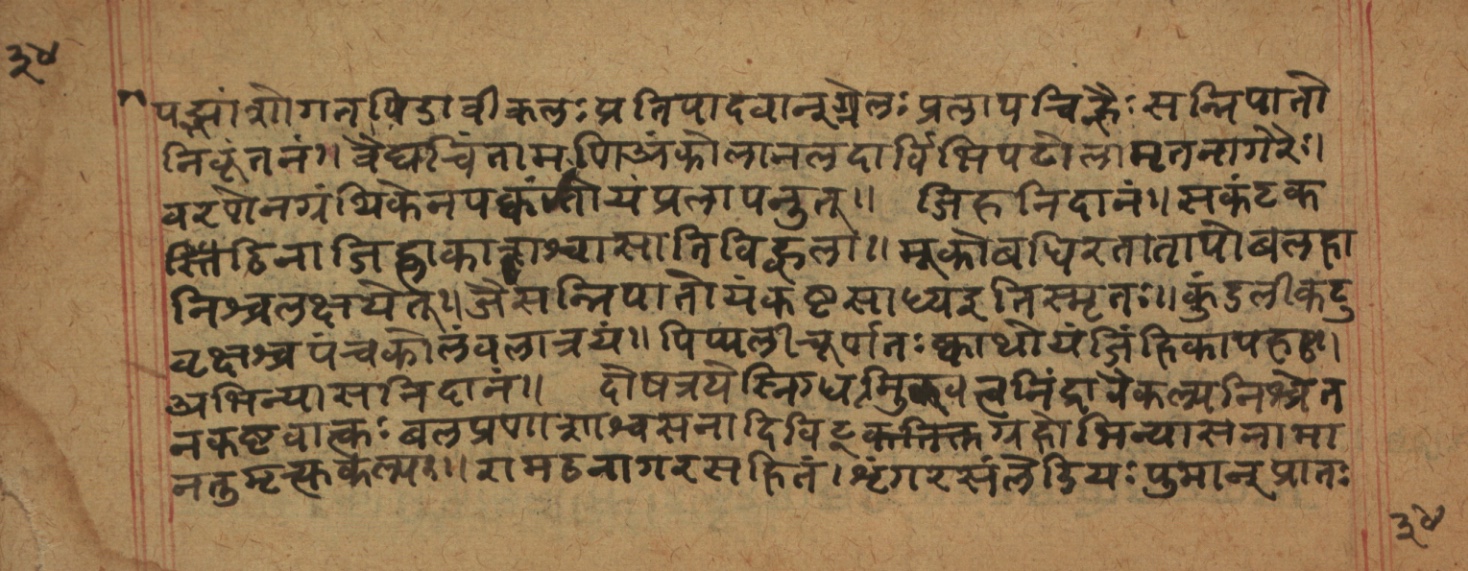 ३४
पद्मांशोगनपिडावीकलः प्रतिपादवान्शूलः प्रलापचिह्नैः सन्निपातो
निकृंतनं॥ वैद्यचिंतामणिअंकोलानलदार्विसिपटोलामृतनागरैः॥
वरणेनग्रंथिकेनपक्वंतोयंप्रलापनुत्॥ जिहनिदानं॥ सकंटक
कठिनाजिह्वाकासश्वासातिविह्वलाः॥ मूकोबधिरतातापोबलहा
निश्चलक्षयेत्॥ जैसन्निपातोयंकष्टसाध्यइतिस्मृतः॥ कुंडलीकटु
वृक्षश्चपंचकोलंबलात्रयं॥ पिप्पलीचूर्णतः क्वाथोयंजिंहिकापहः॥
अभिन्यासनिदानं॥ दोषत्रयेस्निग्धमुखत्वनिंद्रावैकल्यनिश्चेत
नकष्टवाल्कः बलप्रणाशश्वसनादिविट्कभिक्तग्रहोभिन्यासनामा
नतुमृत्फकल्पः॥ रामठनागरसहितं। शृंगरसंलेढियः पुमान् प्रातः
३४